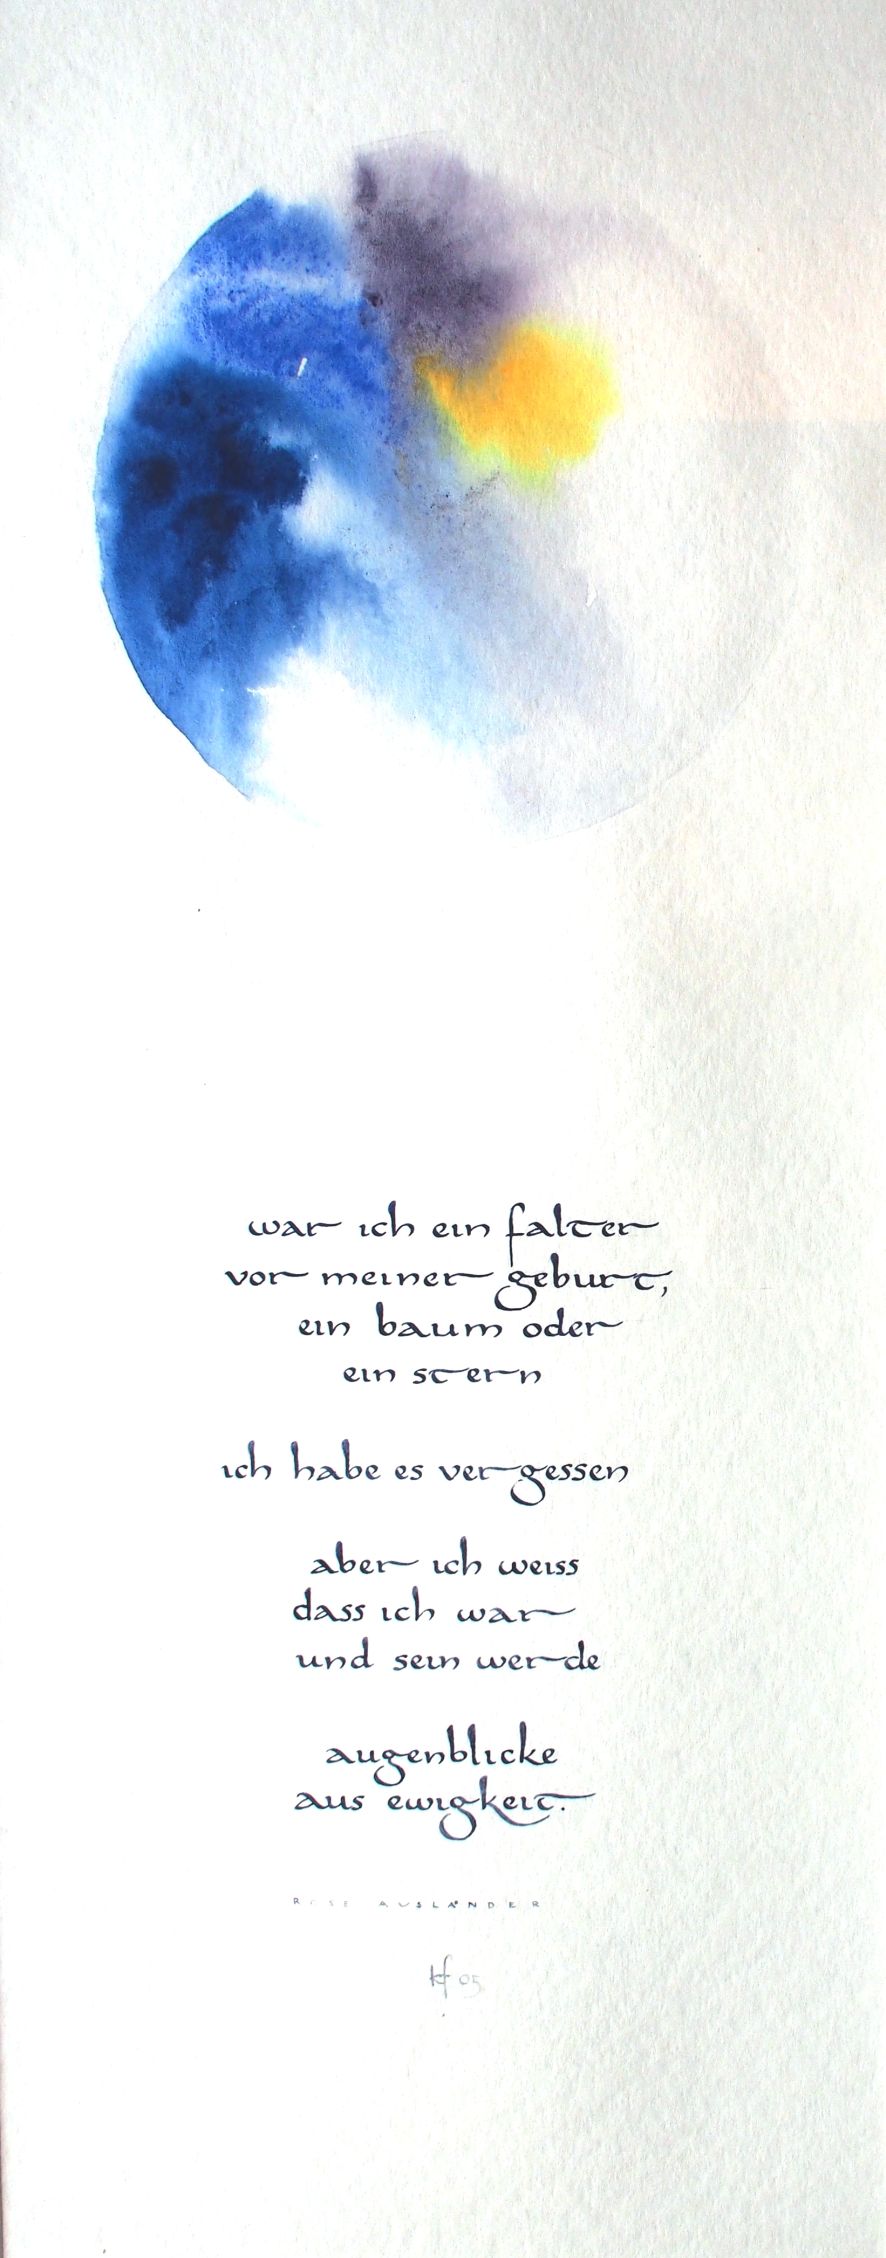 war ich ein falter
vor meiner geburt,
ein baum oder
ein stern
ich habe es vergessen
aber ich weiss
dass ich war
und sein werde
augenblicke
aus ewigkeit.
ROSE AUSLÄNDER
kf 05